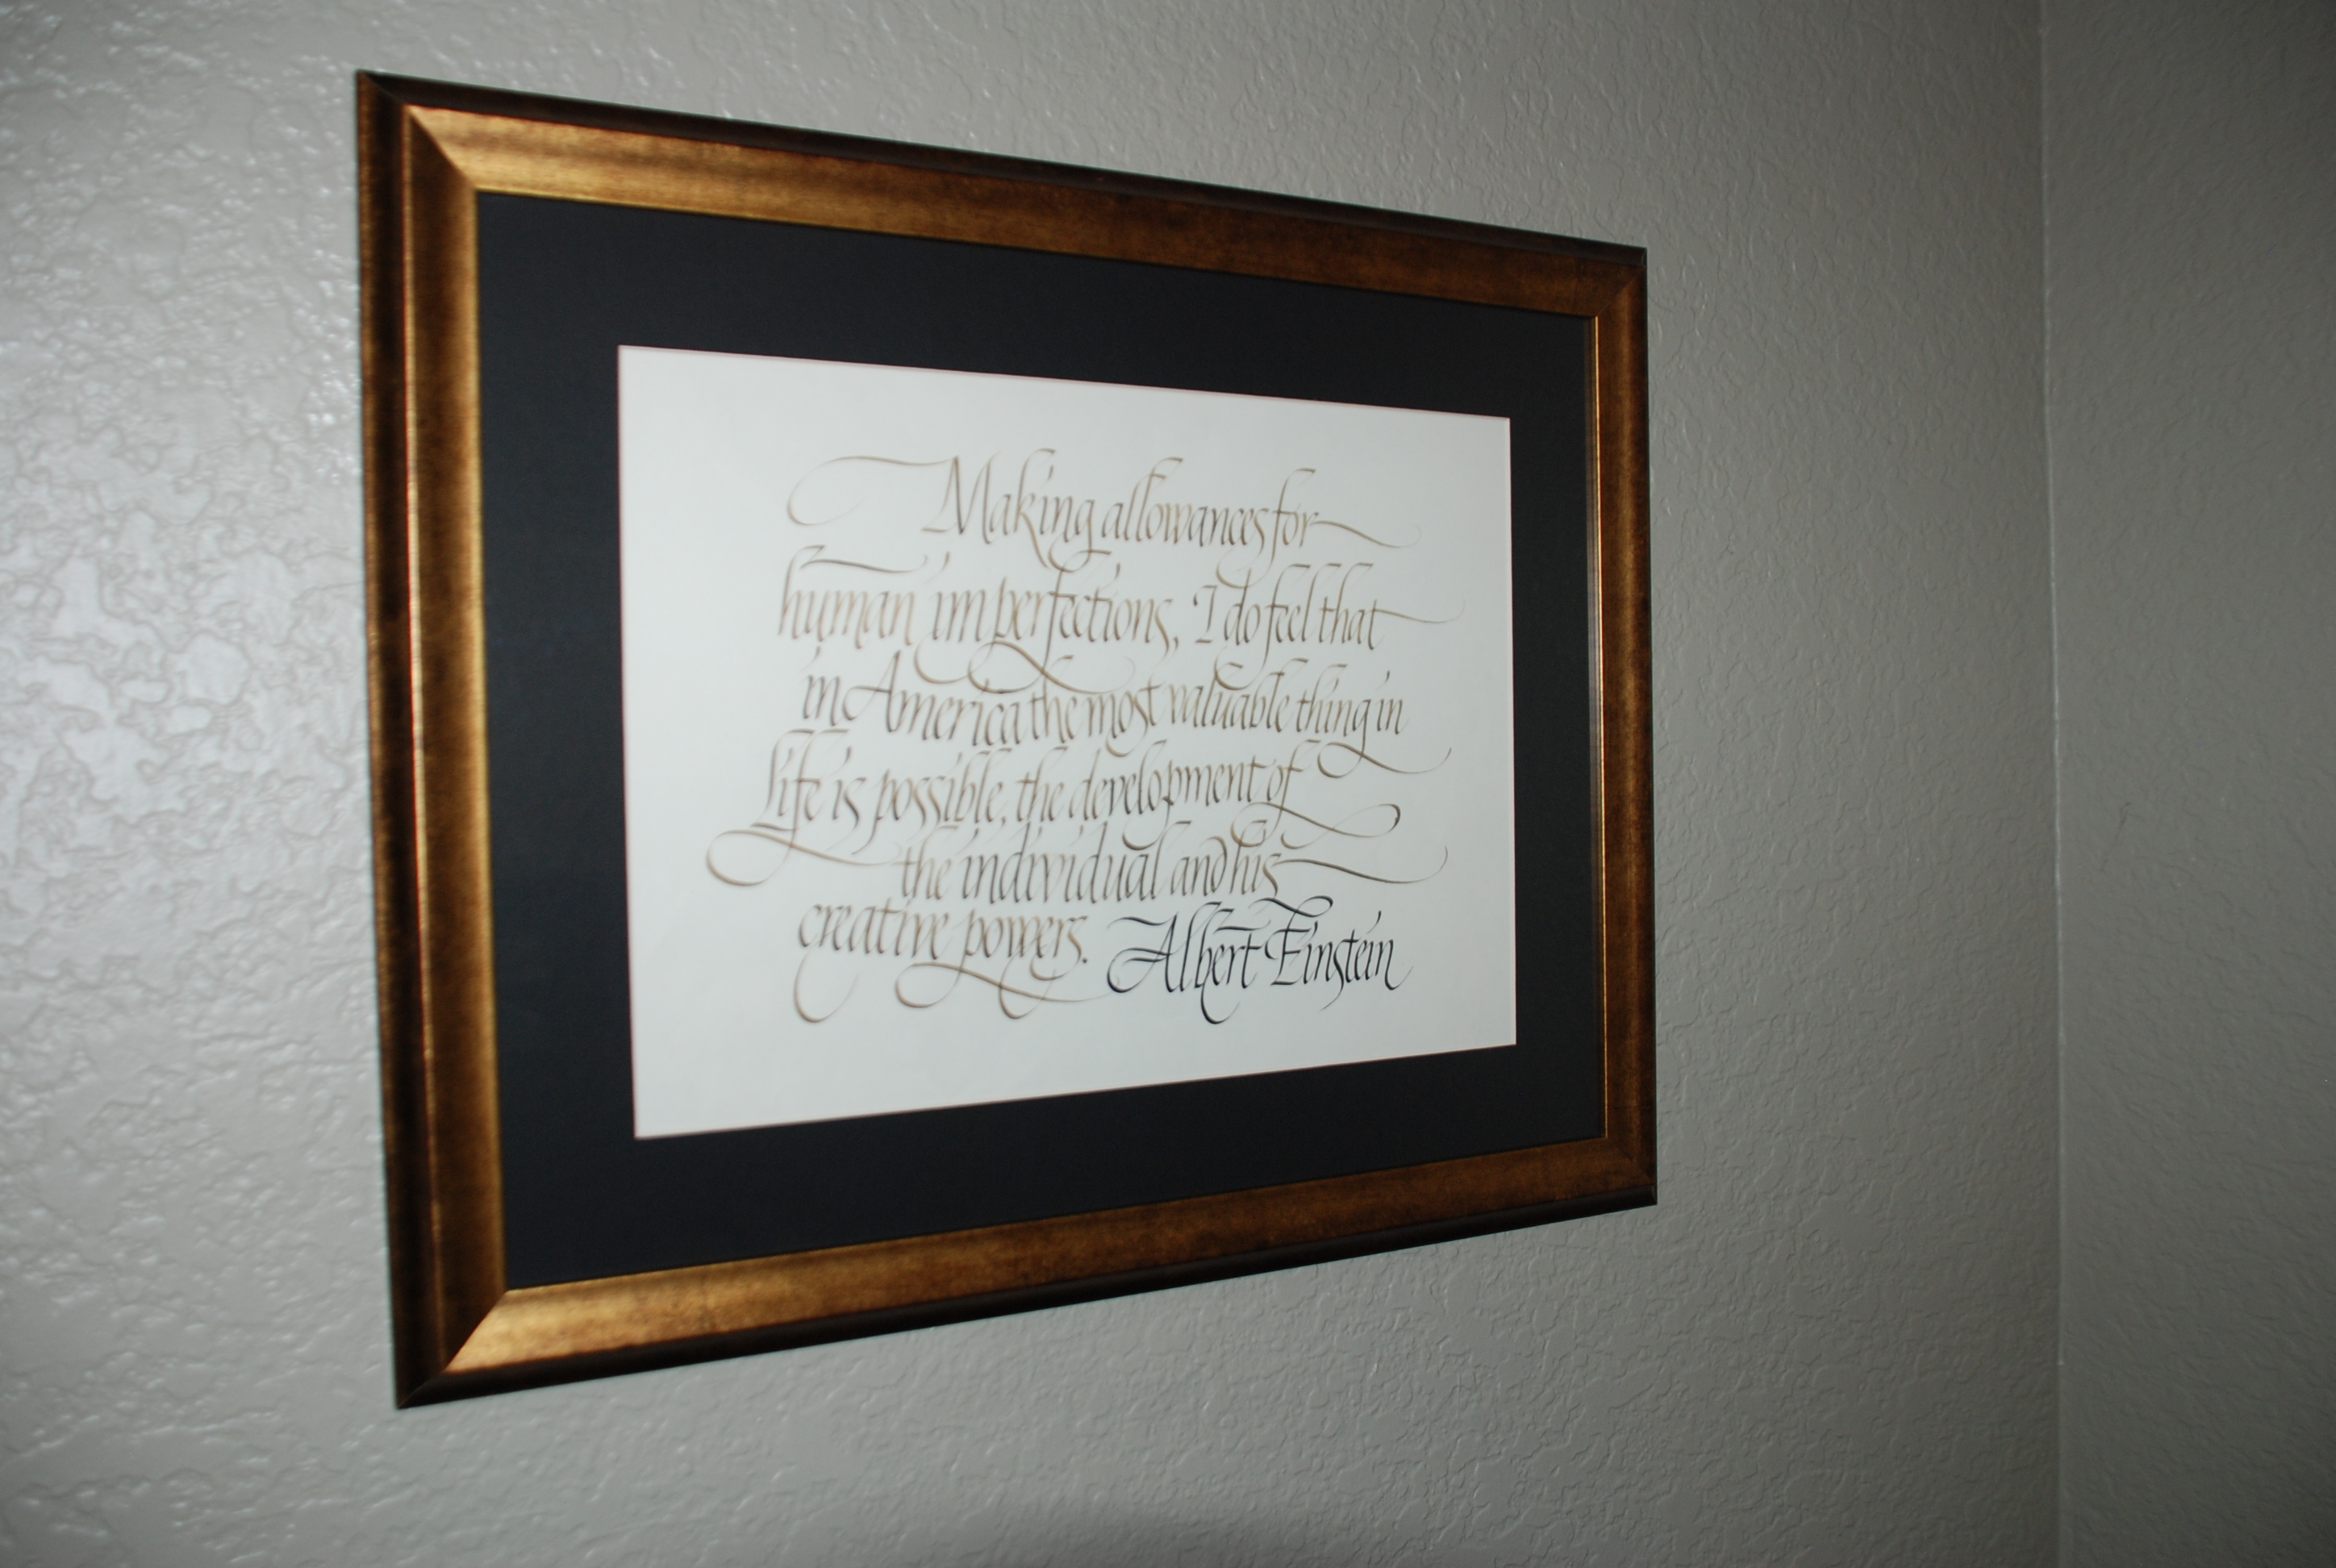 Making allowances for
human imperfections, I do feel that
in America the most valuable thing in
life is possible, the development of
the individual and his
creative powers. Albert Einstein